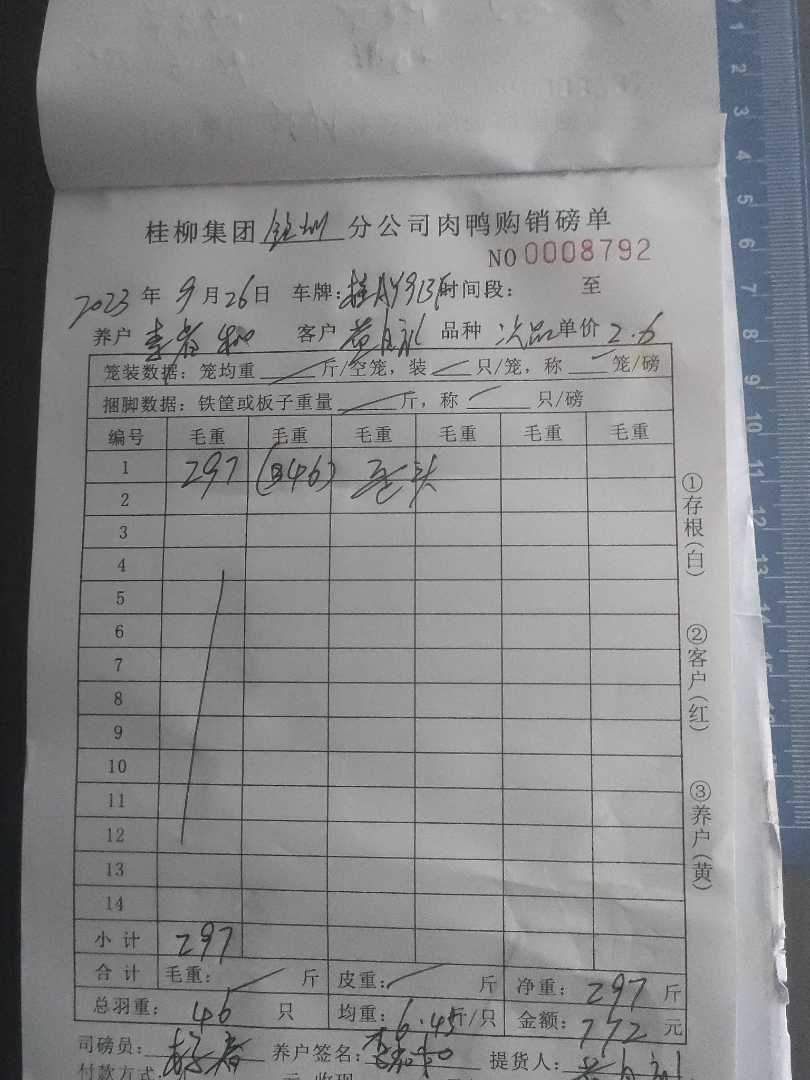 桂柳集团 分公司肉鸭购销磅单
NO 0008792
2023 年 9 月 26 日 车牌: 时间段: 至
养户 李 客户 黄 品种 次品 单价 2.6
笼装数据：笼均重 斤/空笼，装 只/笼，称 笼/磅
捆脚数据：铁筐或板子重量 斤，称 只/磅
编号 毛重 毛重 毛重 毛重 毛重 毛重
1 297 (346)
2
3
4
5
6
7
8
9
10
11
12
13
14
小计 297
合计 毛重: 斤 皮重: 斤 净重: 297 斤
总羽重: 46 只 均重: 6.45 斤/只 金额: 772 元
司磅员: 养户签名: 提货人:
付款方式: 元 收现
①存根(白)
②客户(红)
③养户(黄)
0 1 2 3 4 5 6 7 8 9 10 11 12 13 14 15